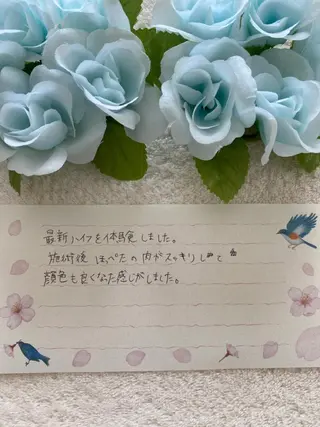 最新ハイフを体験しました。
施術後 ほっぺたの肉がスッキリして
顔色も良くなった感じがしました。